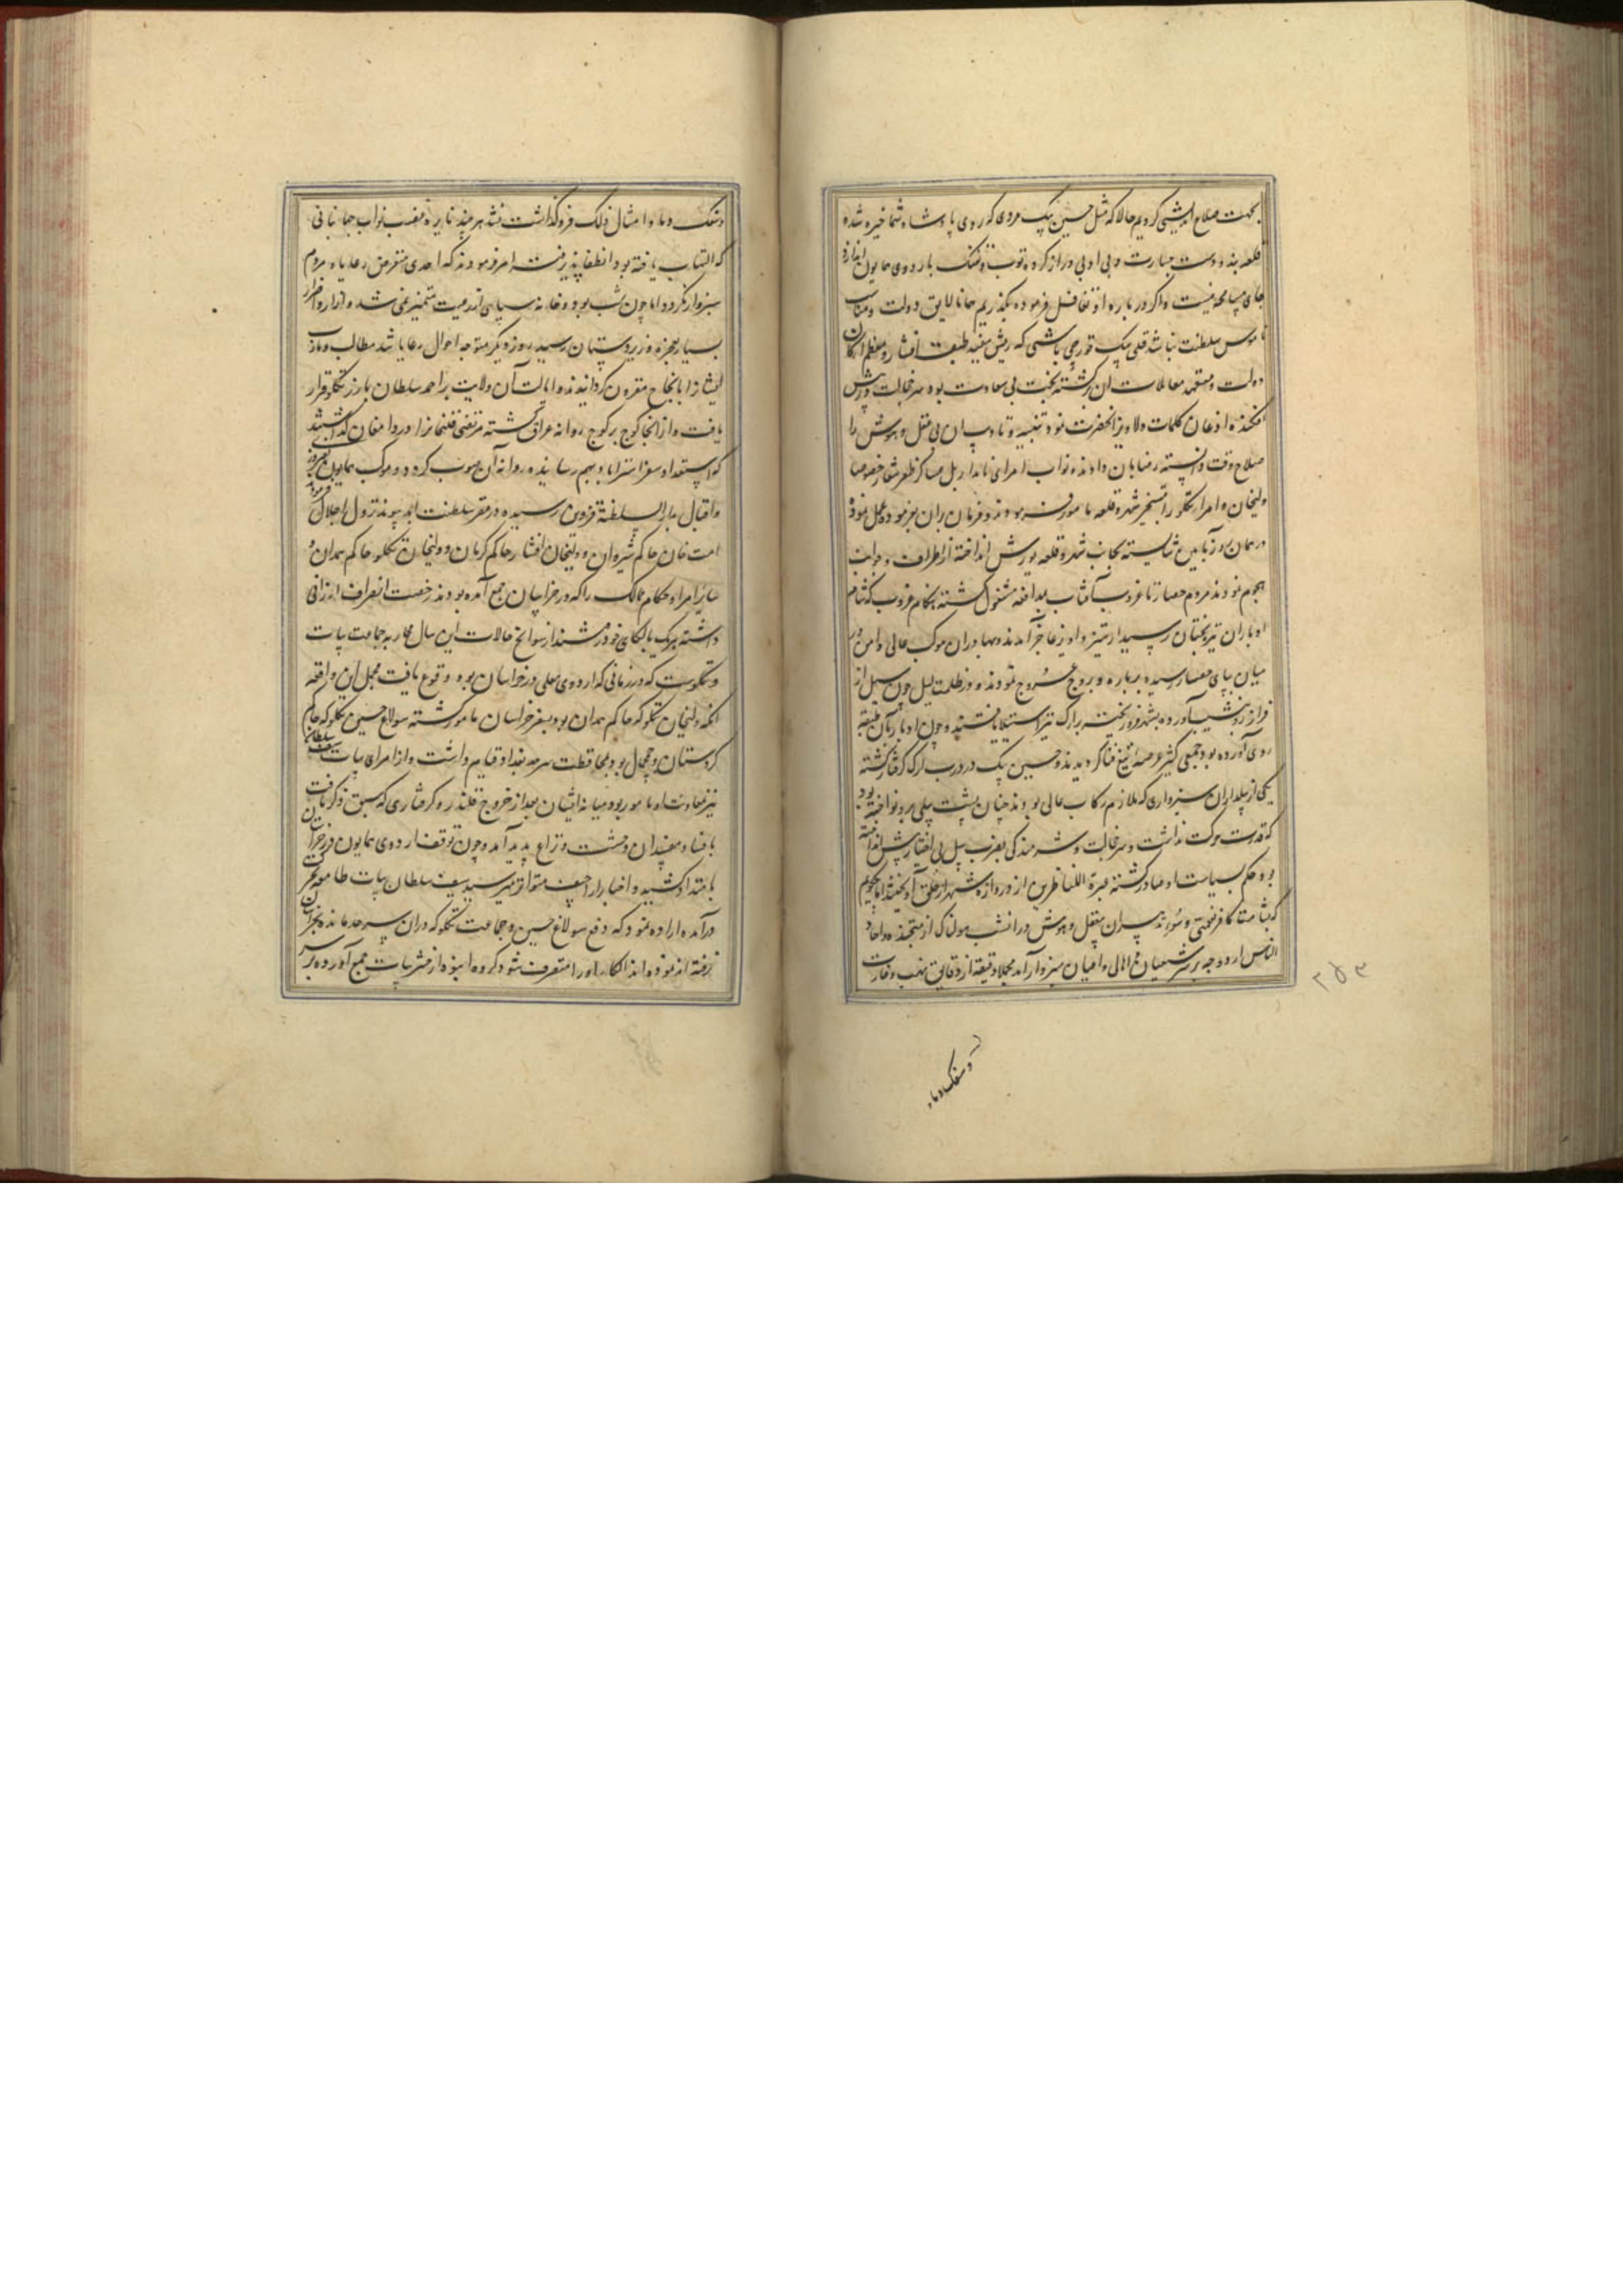 بجهت صلاح اندیشی کردیم حالا که مثل حسین بیک مردی که روی پادشاه شما خیره شده
قلعه بند و دست جسارت و بی ادبی دراز کرده توپ و تفنک باردوی همایون اندازد
جای مسامحه نیست و اگر در باره او تغافل فرموده بگذریم همانا لایق دولت و مناسب
ناموس سلطنت نباشد قلی بیک قورچی باشی که ریش سفید طبقه افشار و معظم ارکان
دولت و متعهد معاملات آن برگشته بخت بی سعادت بود سر خجالت در پیش
افکنده اذعان کلمات ولاویز آنحضرت نمود تنبیه و تادیب آن بی عقل و هوش را
صلاح وقت دانسته رضا بان دادند و نواب امرای نامدار بل عساکر ظفر شعار خصوصا
ولیخان و امراء تکلو را بتسخیر شهر و قلعه مامور فرمودند و فرمان بران بفرموده عمل نموده
در همان روز بآیین شایسته بجانب شهر و قلعه یورش انداخته از اطراف و جوانب
هجوم نمودند مردم حصار تا غروب آفتاب بمدافعه مشغول گشته هنکام غروب که شام
ادبار آن تیره بختان رسید از ستیز و آویز عاجز آمدند و بهادران موکب عالی دامن بر
میان بپای حصار رسیده بر باره و بروج عروج نمودند و در ظلمت لیل چون سیل از
فراز رو بنشیب آورده بشهر فرو ریخت بر ارک نیز استیلا یافتند و چون ادبار بآن طبقه
روی آورده بود جمعی کثیر عرصه تیغ فنا گردیدند و حسین بیک در درب ارک گرفتار گشته
یکی از بیلداران سبزواری که ملازم رکاب عالی بودند چنان پشت بیلی برو نواخته بود
که قدرت حرکت نداشت و سر خجالت و شرمندگی بضرب بیل بی اختیار پیش انداخته
بود حکم بسیاست او صادر گشته عبرة للناظرین از دروازه شهر از حلق آویختند اما چگویم
که بشامت کافر نعمتی و سوء تدبیر آن بیعقل و هوش در آنشب هولناک از متجنده و آحاد
الناس اردو چه بر سر شیعیان و اهالی و اعیان سبزوار آمد مجملا دقیقه از دقایق نهب و غارت
و سفک دماء
۲۵۳
و سفک دماء و امثال ذلک فروگذاشت نشد هر چند نایره غضب نواب جهانبانی
که التهاب یافته بود انطفا پذیرفت امر فرمودند که احدی متعرض رعایا و مردم
سبزوار نگردد اما چون شب بود و خانه سپاهی از رعیت متمیز نمی شد و آزار و اضرار
بسیار بعجزه و زیردستان رسید روز دیگر متوجه احوال رعایا شد مطالب و مآرب
ایشانرا بانجاح مقرون گردانیدند و ایالت آن ولایت بر احمد سلطان بارز تکلو قرار
یافت و از آنجا کوچ بر کوچ روانه عراق گشته مرتضی قلیخانرا در دامغان گذاشتند
که استعداد سفر استراباد بهم رسانیده روانه آن صوب گردد و موکب همایون بفیروزی
و اقبال بدار السلطنة قزوین رسیده در مقر سلطنت ابد پیوند نزول اجلال فرمود
امت خان حاکم شیروان و ولیخان افشار حاکم کرمان و ولیخان تکلو حاکم همدان و
سایر امرا و حکام ممالک را که در خراسان جمع آمده بودند رخصت انصراف ارزانی
داشته هر یک بالکای خود رفتند از سوانخ حالات این سال محاربه جماعت بیات
و تکلوست که در زمانی که اردوی معلی در خراسان بود وقوع یافت مجمل این واقعه
آنکه ولیخان تکلو که حاکم همدان بود بسفر خراسان مامور گشته سولاغ حسین تکلو که حاکم
کردستان و چمچال بود بمحافظت سرحد بغداد قیام داشت و از امرای بیات سلطان
نیز بمعاونت او مامور بود میانه ایشان بعد از خروج قلندر و گرفتاری که سبق ذکر یافت
بافساد مفسدان وحشت و نزاع پدید آمد و چون توقف اردوی همایون در خراسان
بامتداد کشید و اخبار اراجیف متواتر میرسید سیف سلطان بیات طامعه بحرکت
درآمده اراده نمود که دفع سولاغ حسین و جماعت تکلو که در آن سرحد مانده بخراسان
نرفته اند نموده الکاء او را متصرف شود گروه انبوه از حشر بیات جمع آورده بر سر